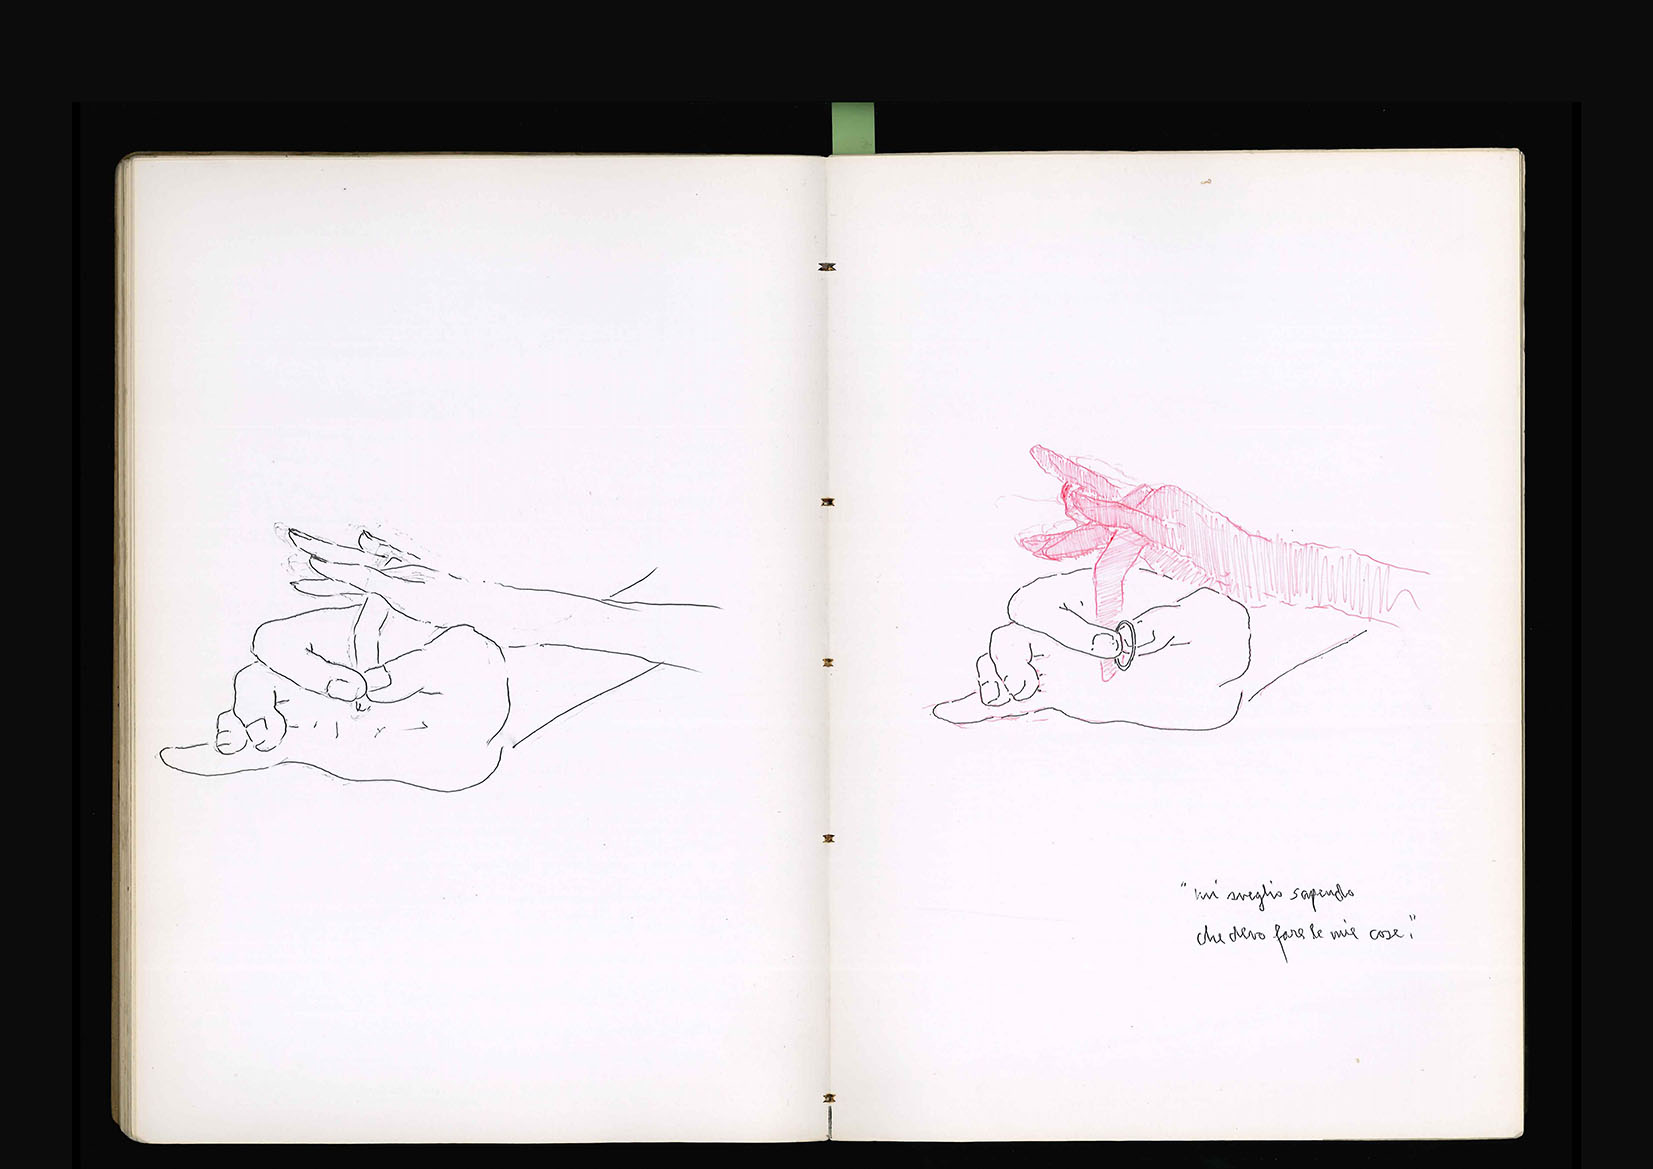 "mi sveglio sapendo
che devo fare le mie cose."